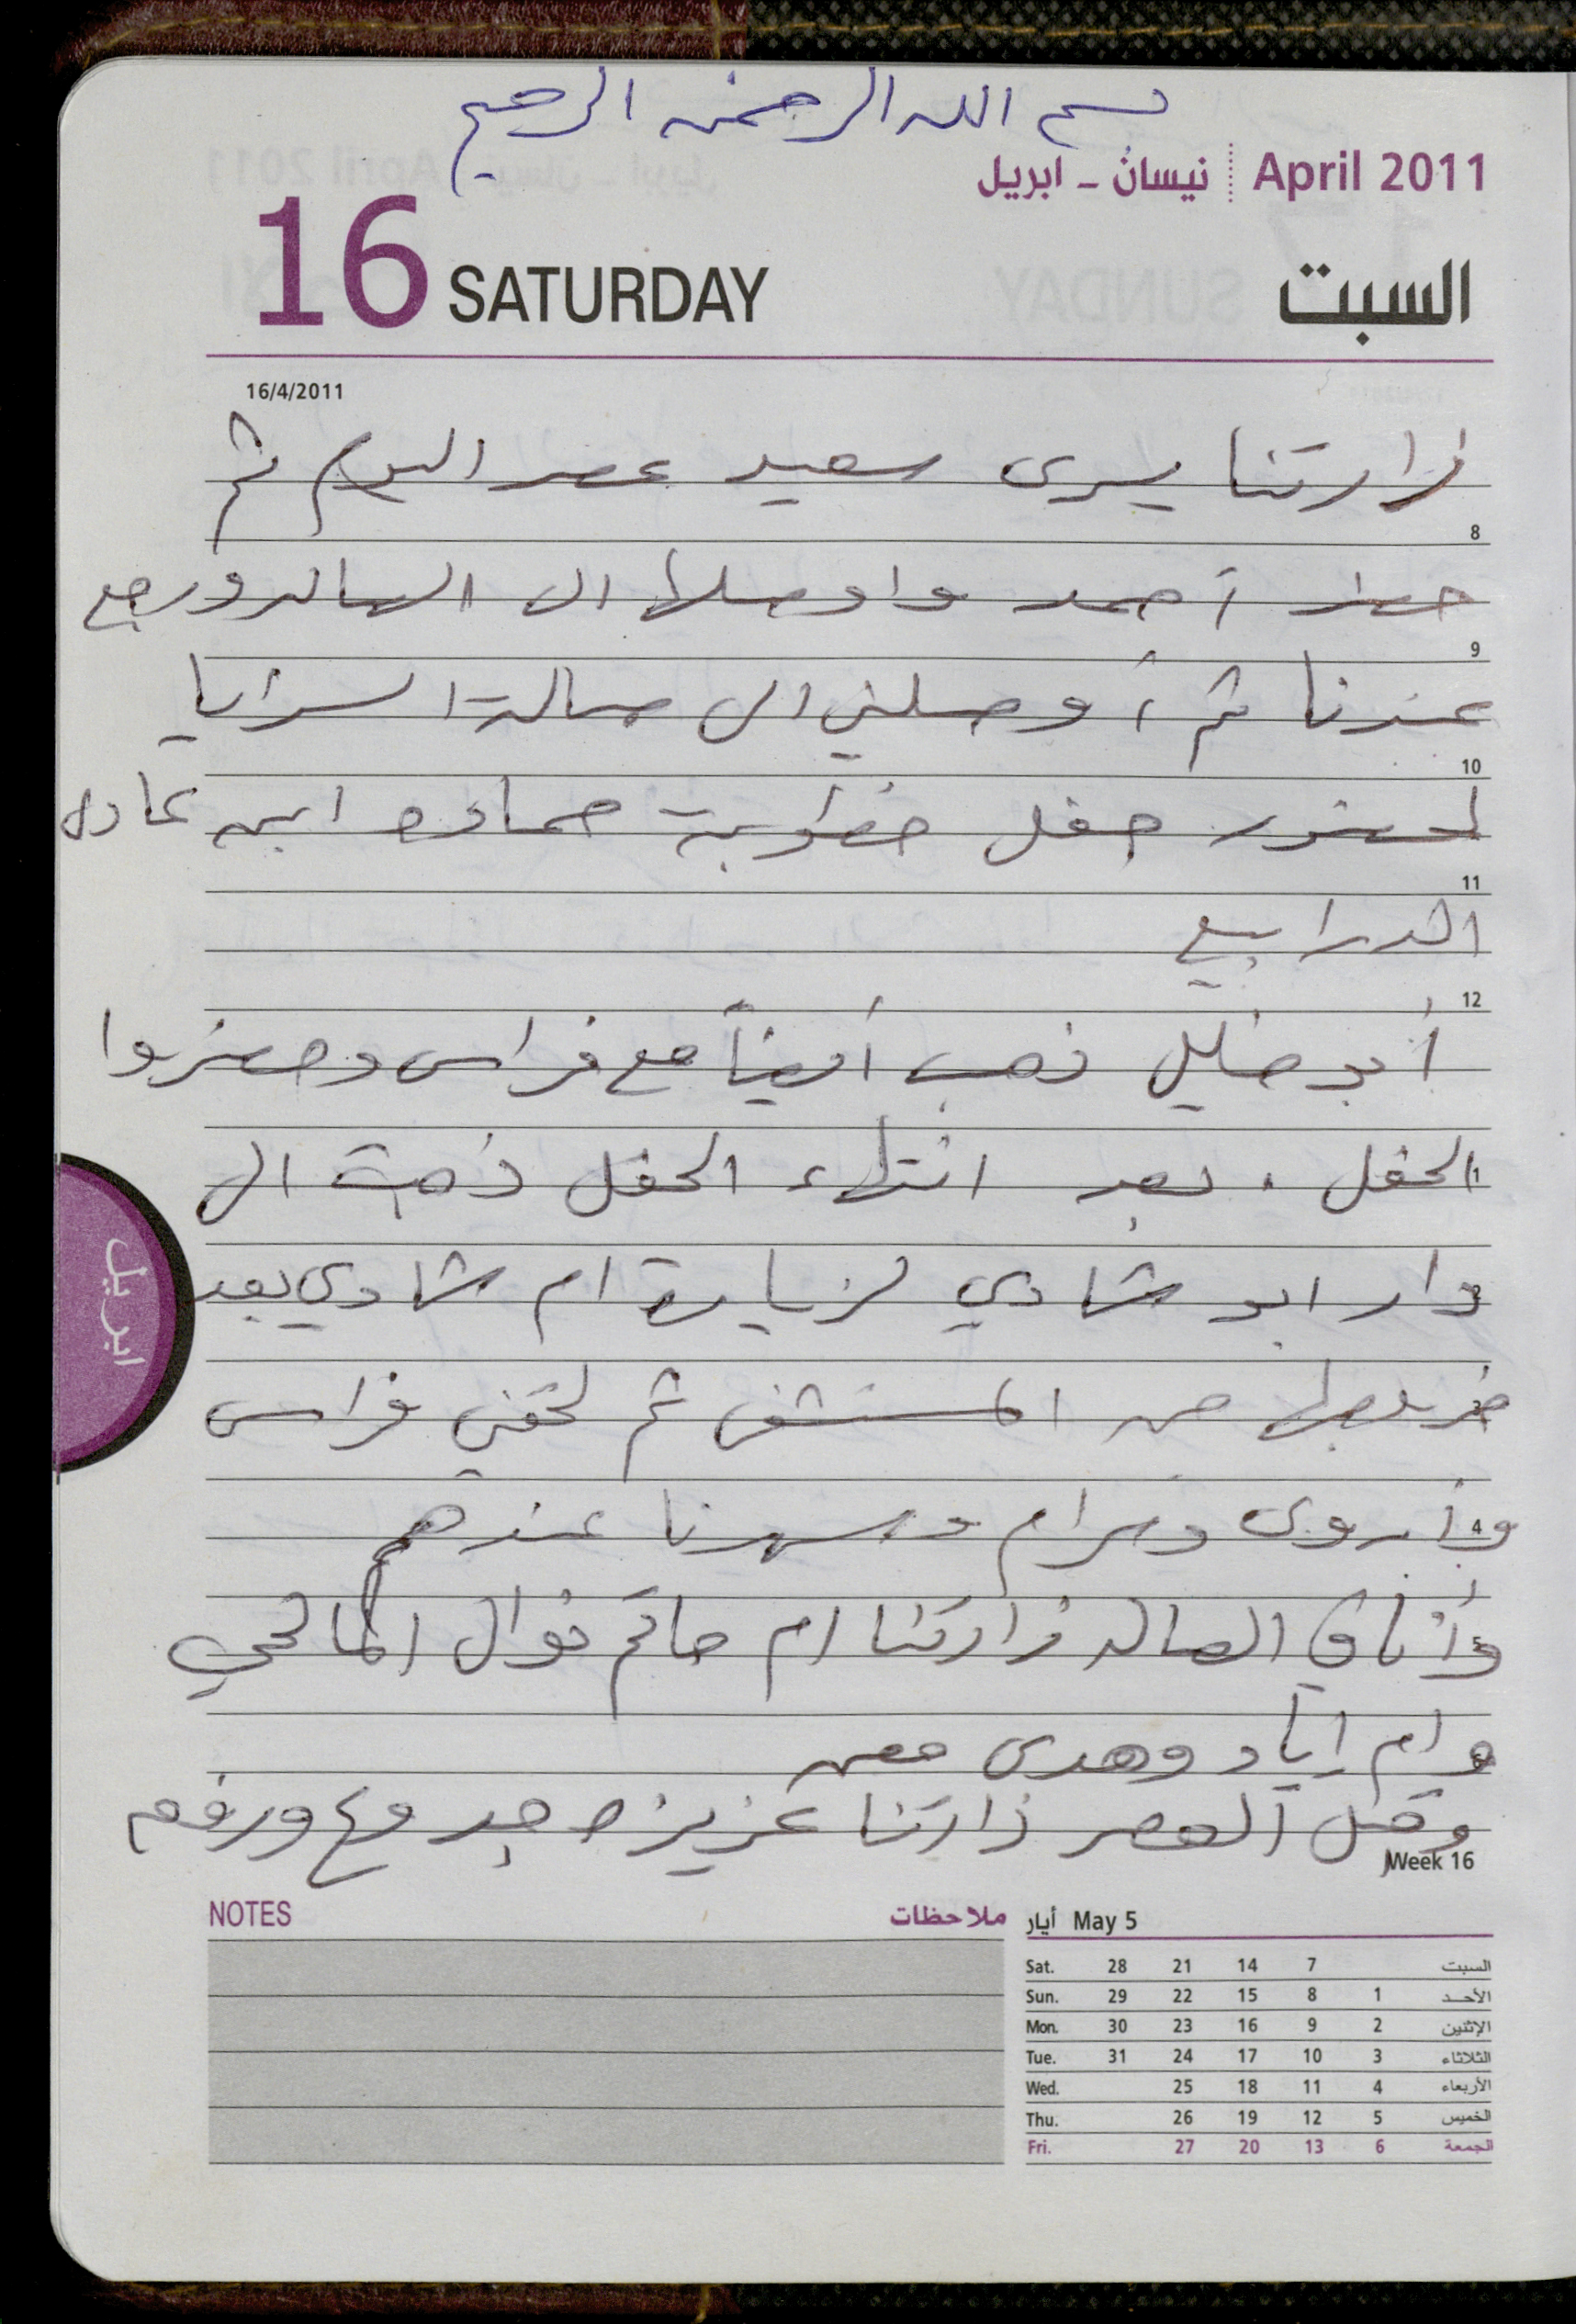 بسم الله الرحمن الرحيم
April 2011 نيسان - ابريل
16 SATURDAY السبت
16/4/2011
زارتنا يسرى سعيد عصر اليوم ثم
8
حضر أحمد واوصلها الى الصاله ورجع
9
عندنا ثم أوصلني الى صالة السرايا
10
لحضور حفل خطوبة حماده ابن عادل
11
الدرابيع
12
أبو خليل ذهب أيضاً مع فراس وحضروا
الحفل . بعد انتهاء الحفل ذهبت الى
دار ابو شادي لزيارة ام شادي بعد
خروجها من المستشفى ثم لحقني فراس
وأبروى ومرام وسهرنا عندهم
وأنا في الصاله زارتنا ام حاتم نوال المالحي
وام إياد وهدى معهن
وقبل العصر زارتنا عزيزه جدوع
Week 16
ابريل
NOTES ملاحظات
أيار May 5
Sat. 28 21 14 7 السبت
Sun. 29 22 15 8 1 الأحد
Mon. 30 23 16 9 2 الإثنين
Tue. 31 24 17 10 3 الثلاثاء
Wed. 25 18 11 4 الأربعاء
Thu. 26 19 12 5 الخميس
Fri. 27 20 13 6 الجمعة